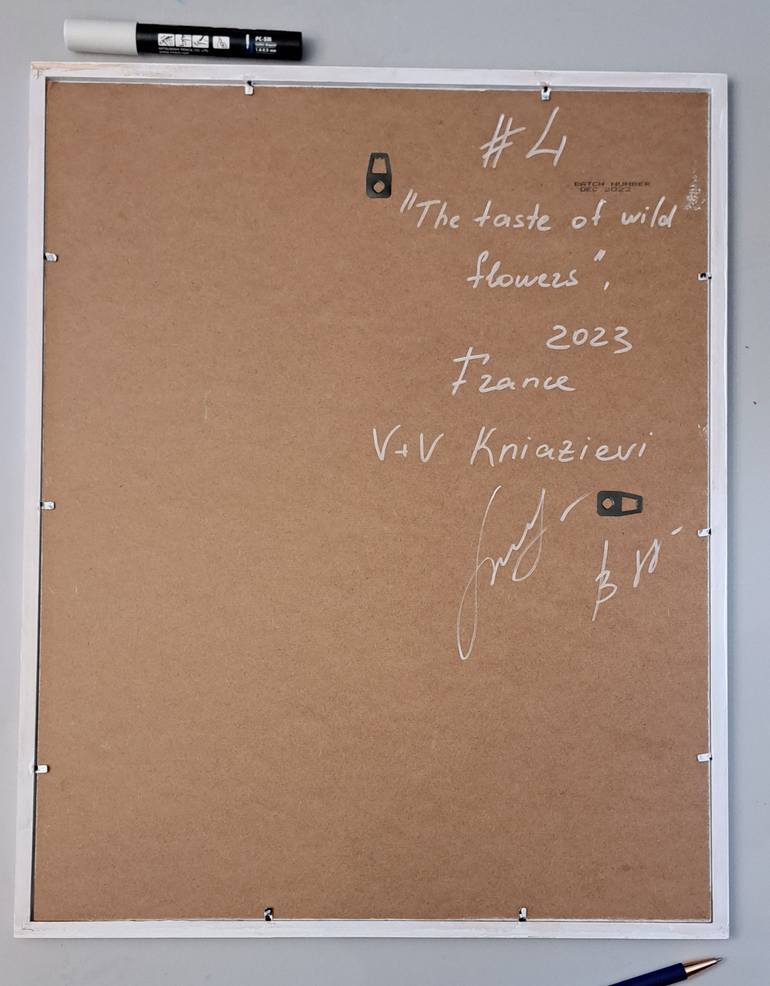 PC-5M
#4
BATCH NUMBER
DEC 2022
"The taste of wild
flowers",
2023
France
V+V Kniazievi